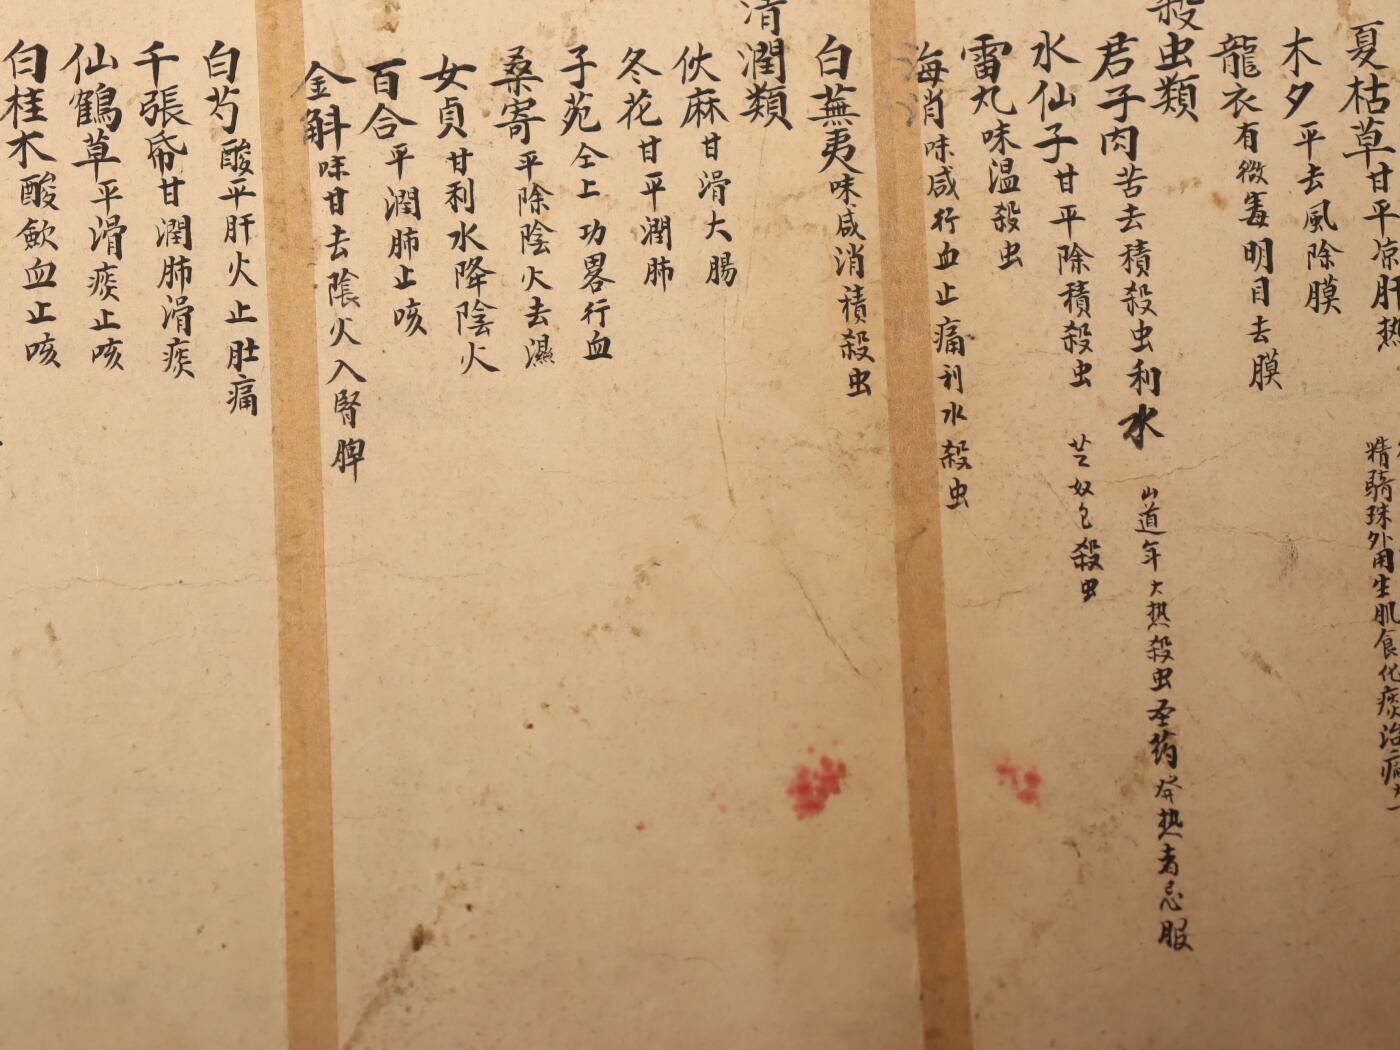 夏枯草甘平凉肝热
精騎珠外用生肌食化痰治
木夕平去風除膜
龍衣有微毒明目去膜
殺虫類
君子肉苦去積殺虫利水
山道年大热殺虫圣药発热者忌服
水仙子甘平除積殺虫
芏奴包殺虫
雷丸味温殺虫
海消味咸行血止痛利水殺虫
白蕪夷味咸消積殺虫
清潤類
伙麻甘滑大腸
冬花甘平潤肺
子苑仝上 功畧行血
桑寄平除陰火去濕
女貞甘利水降陰火
百合平潤肺止咳
金斛味甘去陰火入腎脾
白芍酸平肝火止肚痛
千張帋甘潤肺滑痰
仙鶴草平滑痰止咳
白桂木酸歛血止咳